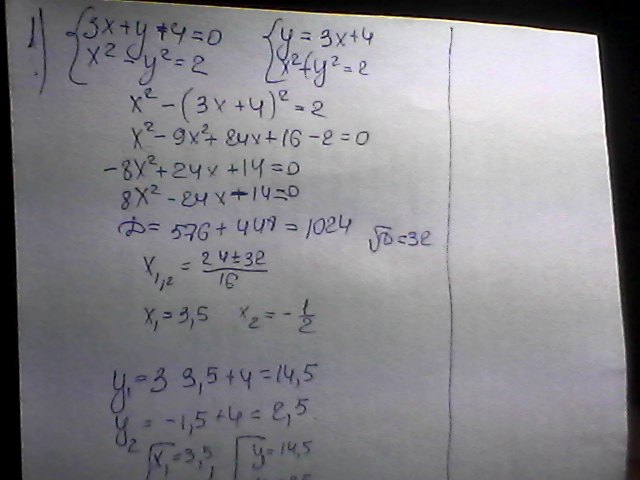 1) {3x+y+4=0 {y=3x+4
x²-y²=2 x²-(y²=2
x²-(3x+4)²=2
x²-9x²+24x+16-2=0
-8x²+24x+14=0
8x²-24x-14=0
D=576+448=1024 √D=32
x₁,₂=24±32/16
x₁=3,5 x₂=-1/2
y₁=3 3,5+4=14,5
y₂=-1,5+4=2,5
x₁=3,5, y=14,5